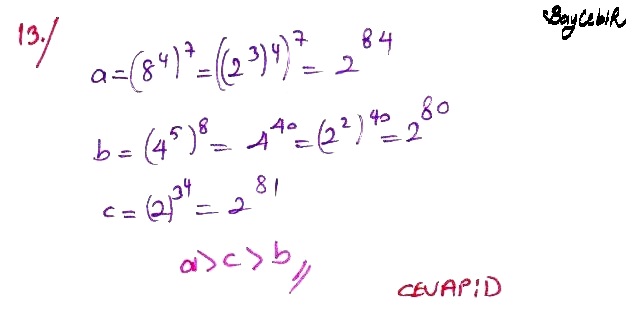 BayCebir
13./
a = (8^4)^7 = ((2^3)^4)^7 = 2^84
b = (4^5)^8 = 4^40 = (2^2)^40 = 2^80
c = (2)^3^4 = 2^81
a > c > b //
CEVAP: D